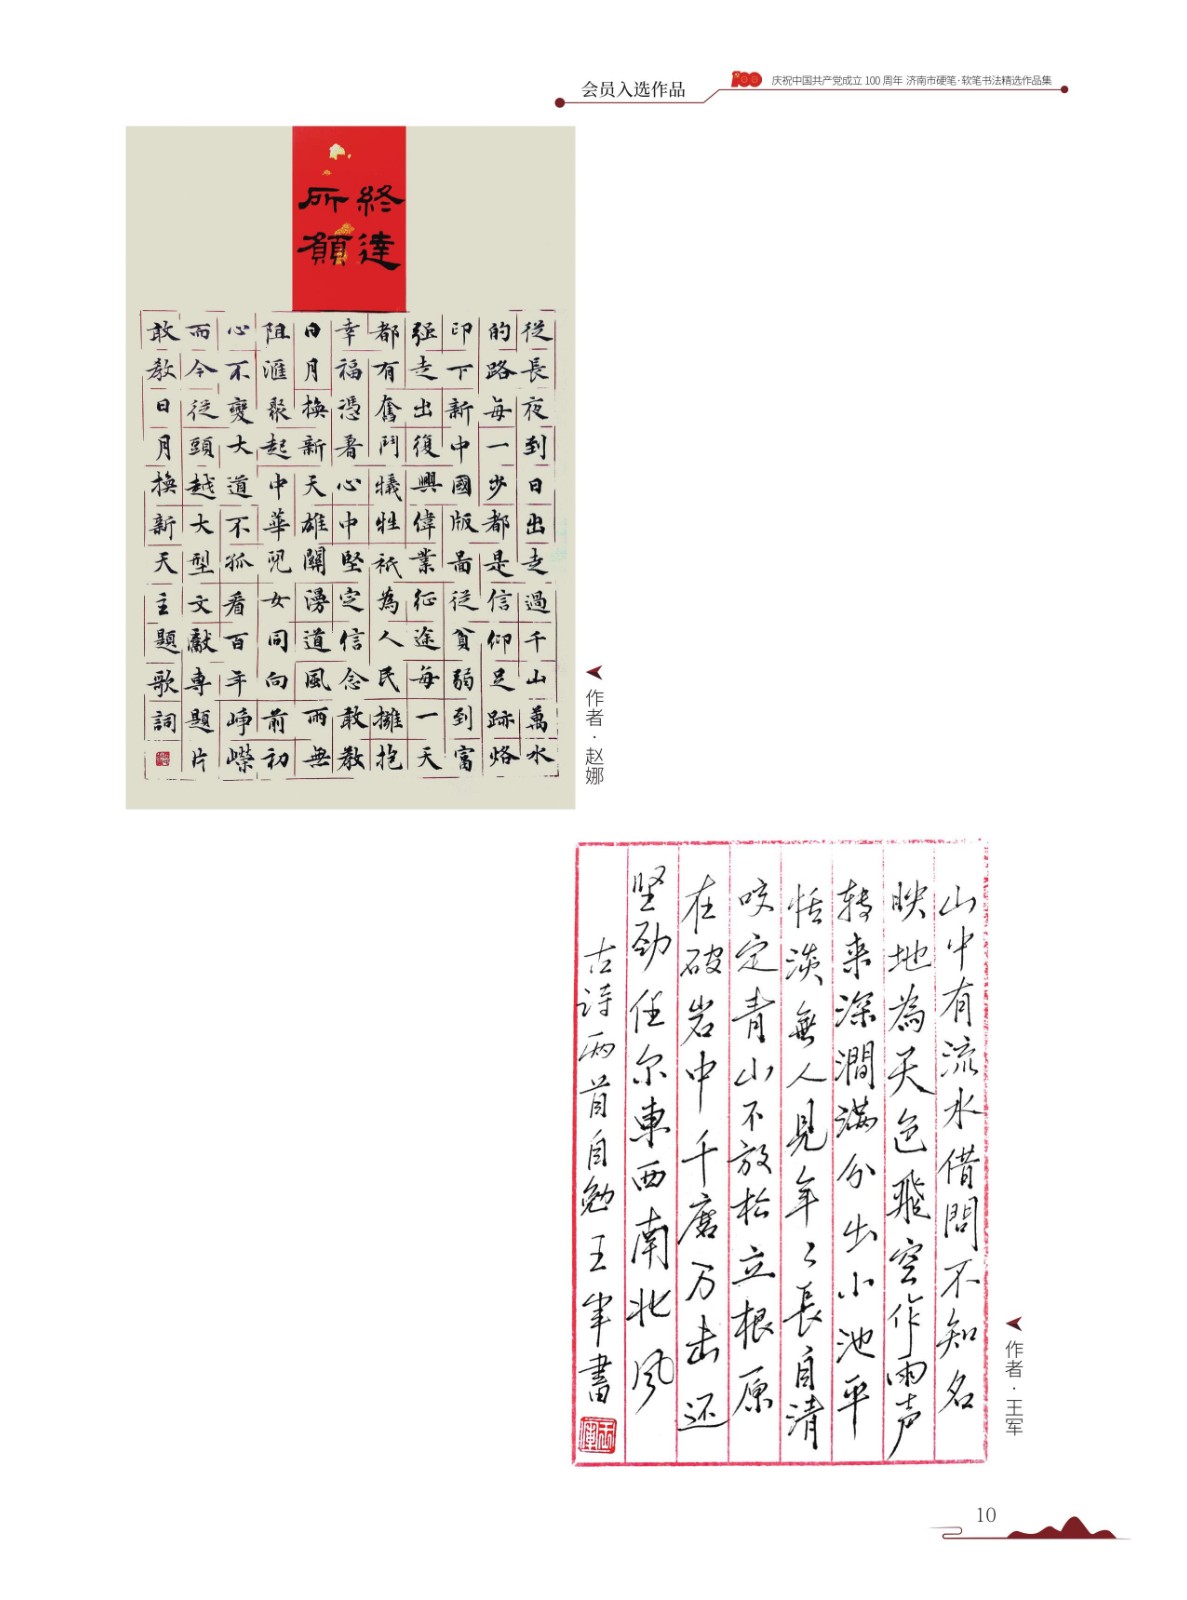 会员入选作品
100
庆祝中国共产党成立 100 周年 济南市硬笔·软笔书法精选作品集
終達
所願
從長夜到日出走過千山萬水
的路每一步都是信仰足跡烙
印下新中國版啚從貧弱到富
强走出復興偉業征途每一天
都有奮鬥犧牲祇為人民擁抱
幸福憑着心中堅定信念敢教
日月換新天雄關漫道風雨無
阻滙聚起中華兒女同向前初
心不變大道不孤看百年崢嶸
而今從頭越大型文獻專題片
敢教日月換新天主題歌詞
作者·赵娜
山中有流水借問不知名
映地為天色飛空作雨声
转来深澗满分出小池平
恬淡無人見年〻長自清
咬定青山不放松立根原
在破岩中千磨万击还
坚劲任尔東西南北风
古诗两首自勉王军書
作者·王军
10